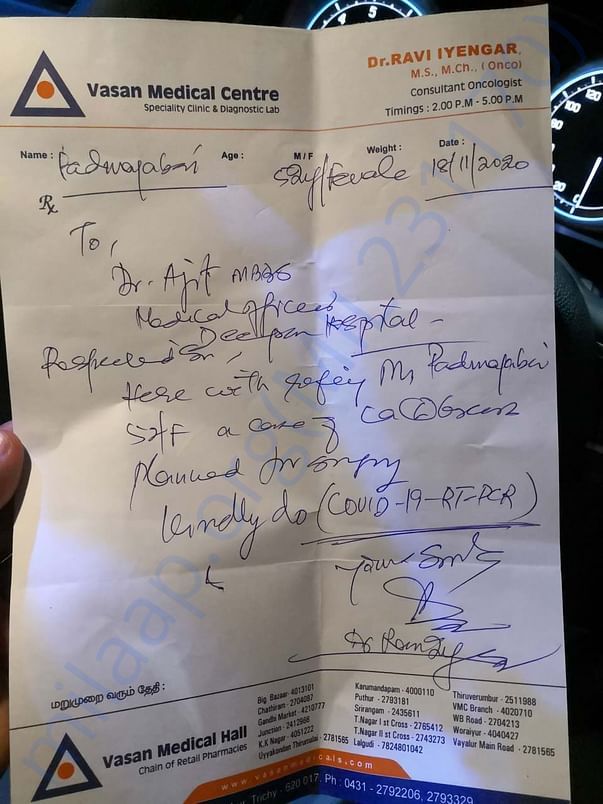 Vasan Medical Centre
Speciality Clinic & Diagnostic Lab
Dr.RAVI IYENGAR,
M.S., M.Ch., (Onco)
Consultant Oncologist
Timings : 2.00 P.M - 5.00 P.M
Name : Padmajabai Age : M / F 52y/Female Weight : Date : 18/11/2020
Rx
To,
Dr. Ajit MBBS
Medical officer
Deepan Hospital -
Respected Sir,
Here with refering Mrs Padmajabai
52/F a case of Ca
planned for surgery
kindly do (COVID-19-RT-PCR)
மறுமுறை வரும் தேதி :
Vasan Medical Hall
Chain of Retail Pharmacies
Big Bazaar - 4013101
Chathiram - 2704087
Gandhi Market - 4210777
Junction - 2412966
K.K Nagar - 4051222
Uyyakondan Thirumalai - 2781565
Karumandapam - 4000110
Puthur - 2793181
Srirangam - 2435611
T.Nagar I st Cross - 2765412
T.Nagar II st Cross - 2743273
Lalgudi - 7824801042
Thiruverumbur - 2511988
VMC Branch - 4020710
WB Road - 2704213
Woraiyur - 4040427
Vayalur Main Road - 2781565
www.vasanmedicals.com
Trichy - 620 017. Ph : 0431 - 2792206, 2793329